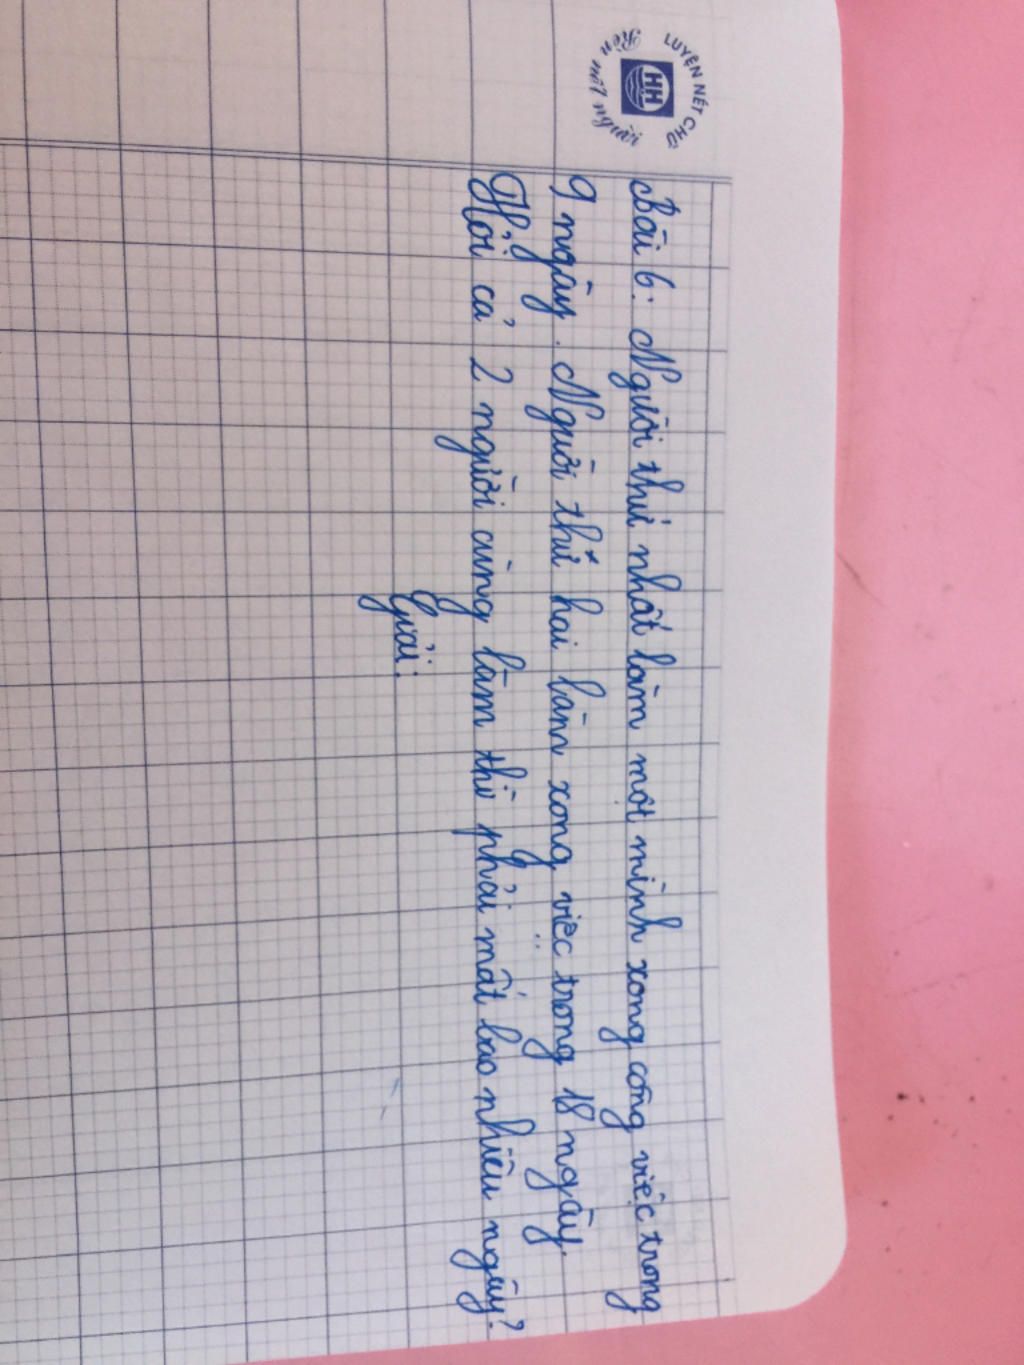 LUYỆN NÉT CHỮ
Rèn nết người
HH
Bài 6: Người thứ nhất làm một mình xong công việc trong
9 ngày. Người thứ hai làm xong việc trong 18 ngày.
Hỏi cả 2 người cùng làm thì phải mất bao nhiêu ngày?
Giải: